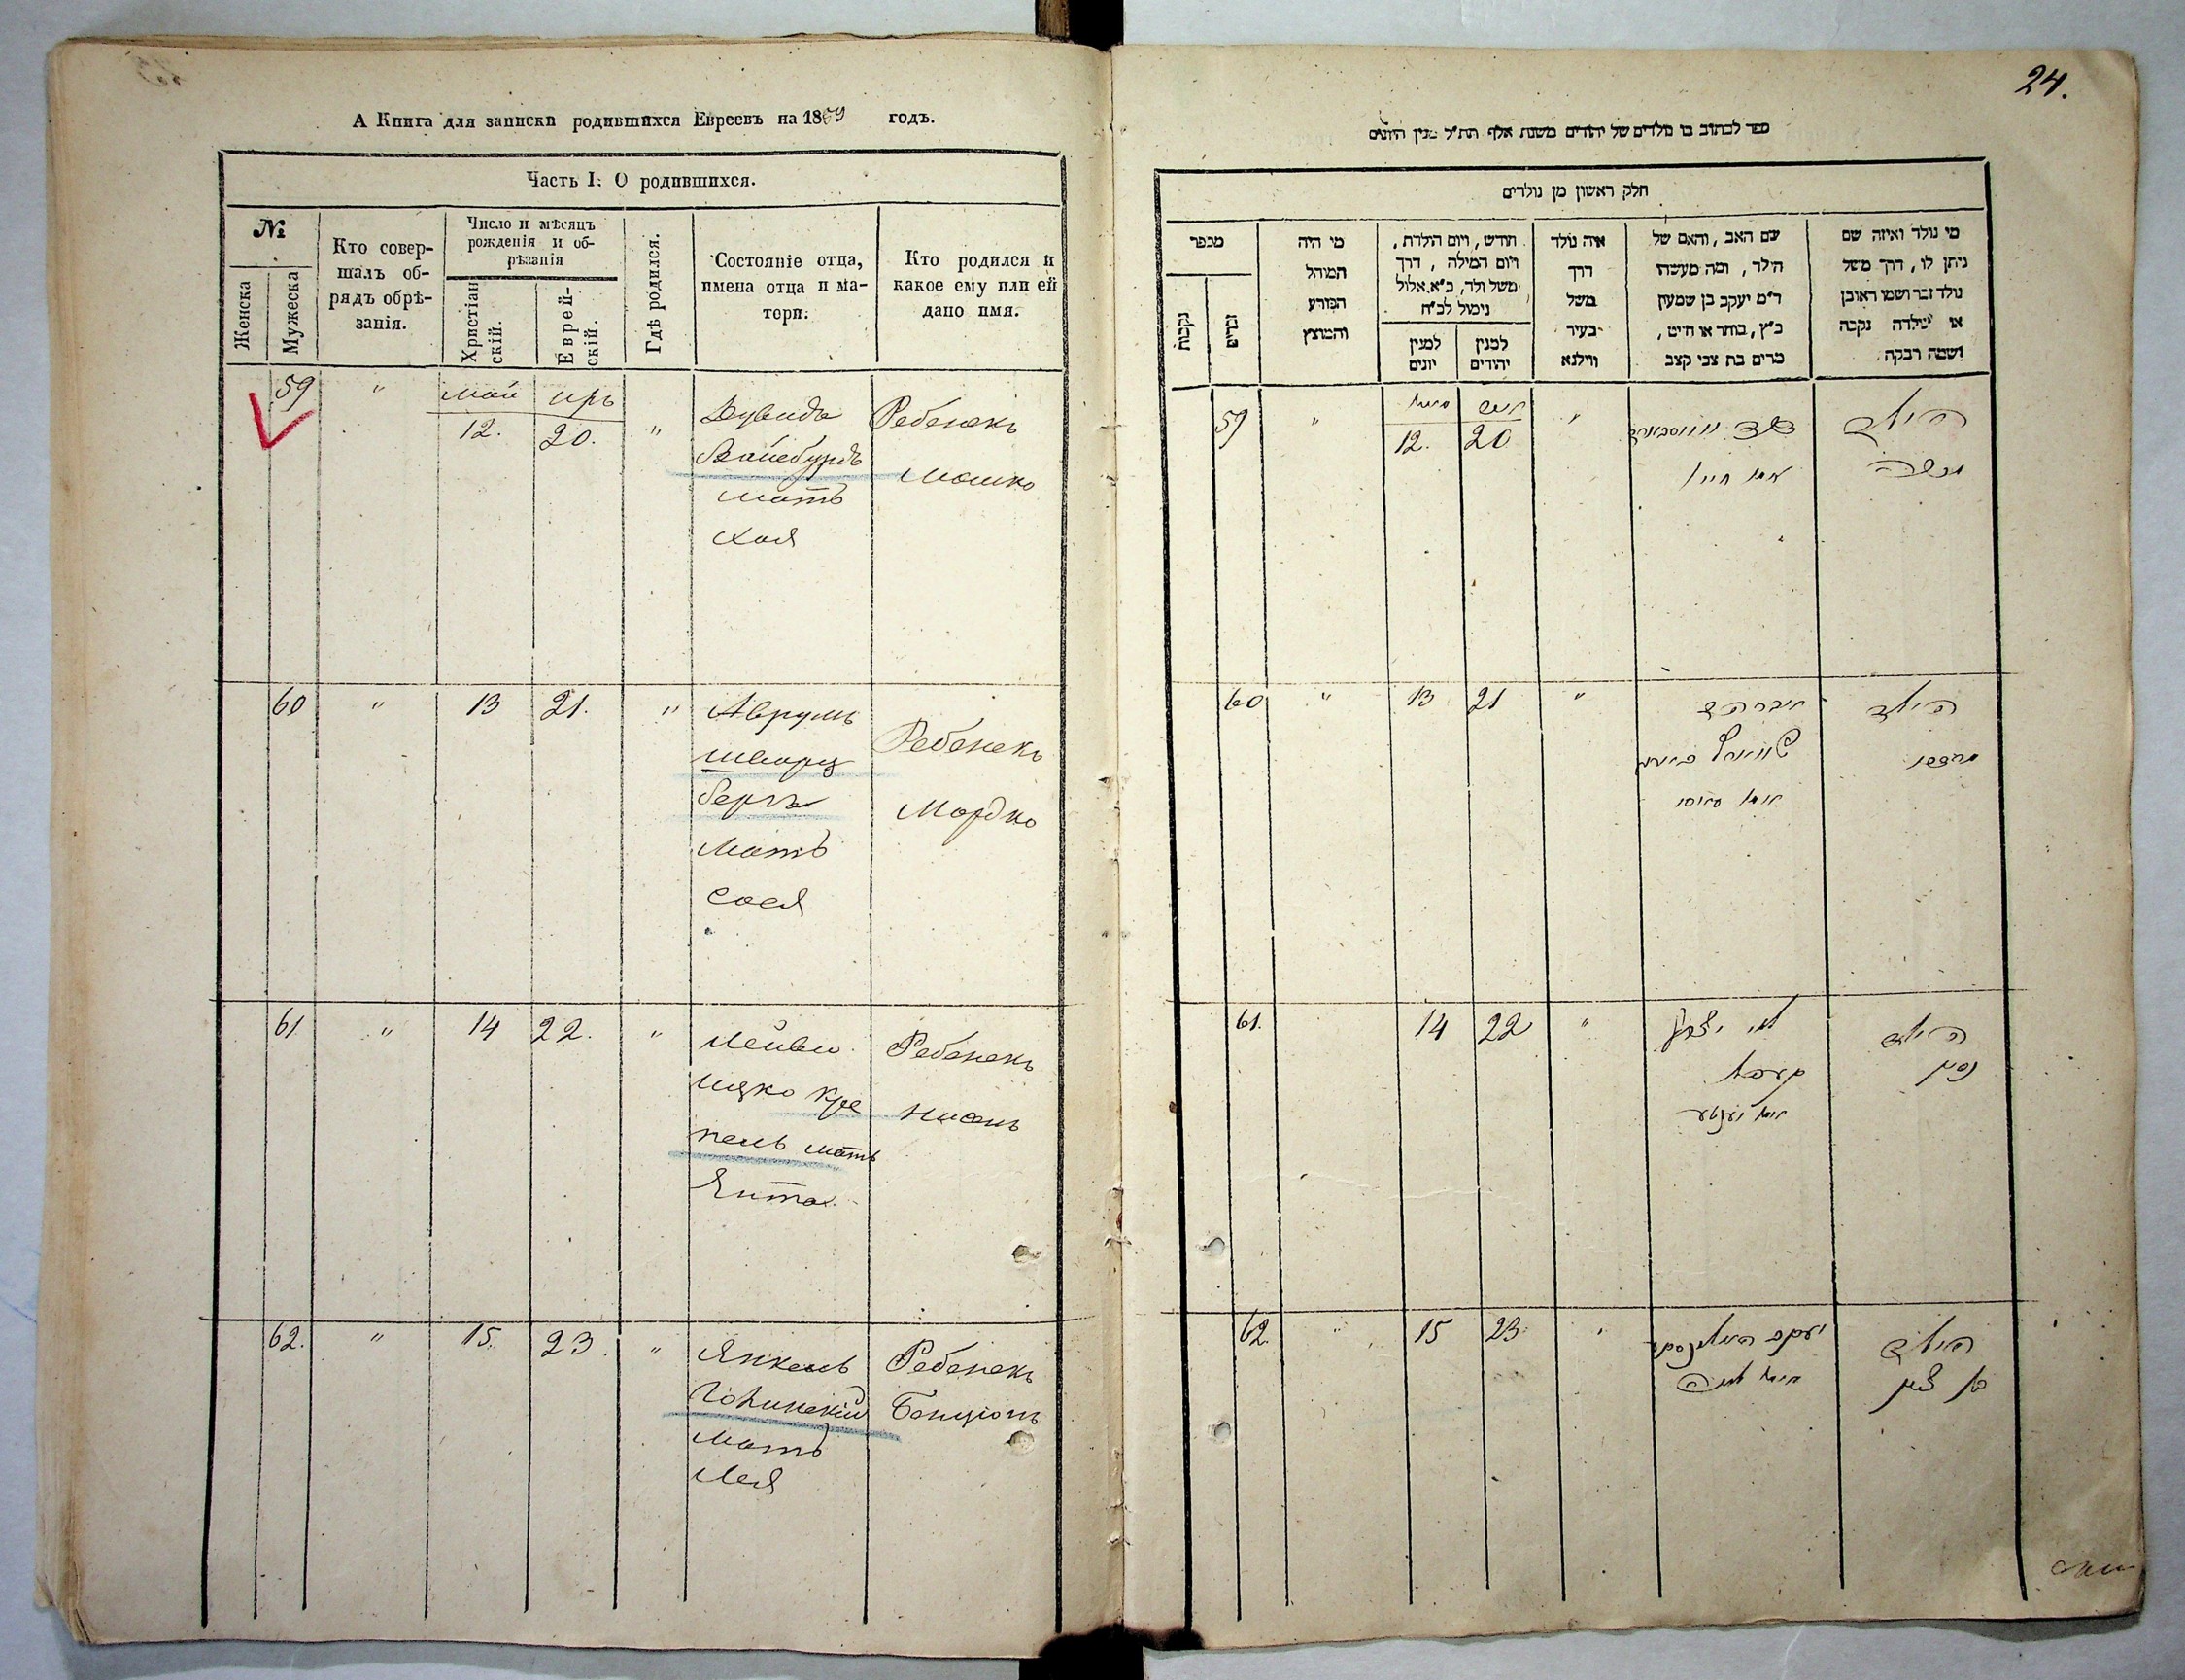 А Книга для записки родившихся Евреевъ на 1859 годъ.
Часть I: О родившихся.
№
Женска
Мужеска
Кто совер-
шалъ об-
рядъ обрѣ-
занія.
Число и мѣсяцъ
рожденія и об-
рѣзанія
Христіан
скій.
Еврей-
скій.
Гдѣ родился.
Состояніе отца,
имена отца и ма-
тери.
Кто родился и
какое ему или ей
дано имя.
59 " май 12. иръ 20. "
Дувидъ
Вайсбурдъ
мать
Хая
Ребенекъ
Мошко
60 " 13 21. "
Аврумъ
Шварц
бергъ
Мать
Сося
Ребенекъ
Мордко
61 " 14 22. "
Лейви
Ицко Кре
пель мать
Янта
Ребенекъ
Нисень
62. " 15. 23. "
Янкель
мать
Лея
Ребенекъ
Бенціонъ
24.
ספר לכתוב בו נולדים של יהודים משנת אלף תת״ל מנין היונים
חלק ראשון מן נולדים
מי נולד ואיזה שם
ניתן לו, דרך משל
נולד זכר ושמו ראובן
או ילדה נקבה
ושמה רבקה
שם האב, והאם של
הילד, ומה מעשהו
ר״מ יעקב בן שמעון
כ״ץ, בוחר או חייט,
מרים בת צבי קצב
איה נולד
דרך
משל
בעיר
ווילנא
חודש, ויום הולדת,
ויום המילה, דרך
משל ולד, כ״א אלול
נימול לכ״ח
למנין
יהודים
למנין
יונים
מי היה
המוהל
הפורע
והמוצץ
מספר
זכרים
נקבות
59 " 12. 20 "
הילד
משה
דוד
אמו חיי׳
60 " 13 21 "
הילד
מרדכי
אברהם
שווארץ בערג
אמו סאסי
61. 14 22 "
הילד
ניסן
לוי יצחק
קרעפל
אמו יענטע
62. " 15 23. "
הילד
בן ציון
יעקב
אמו לאה